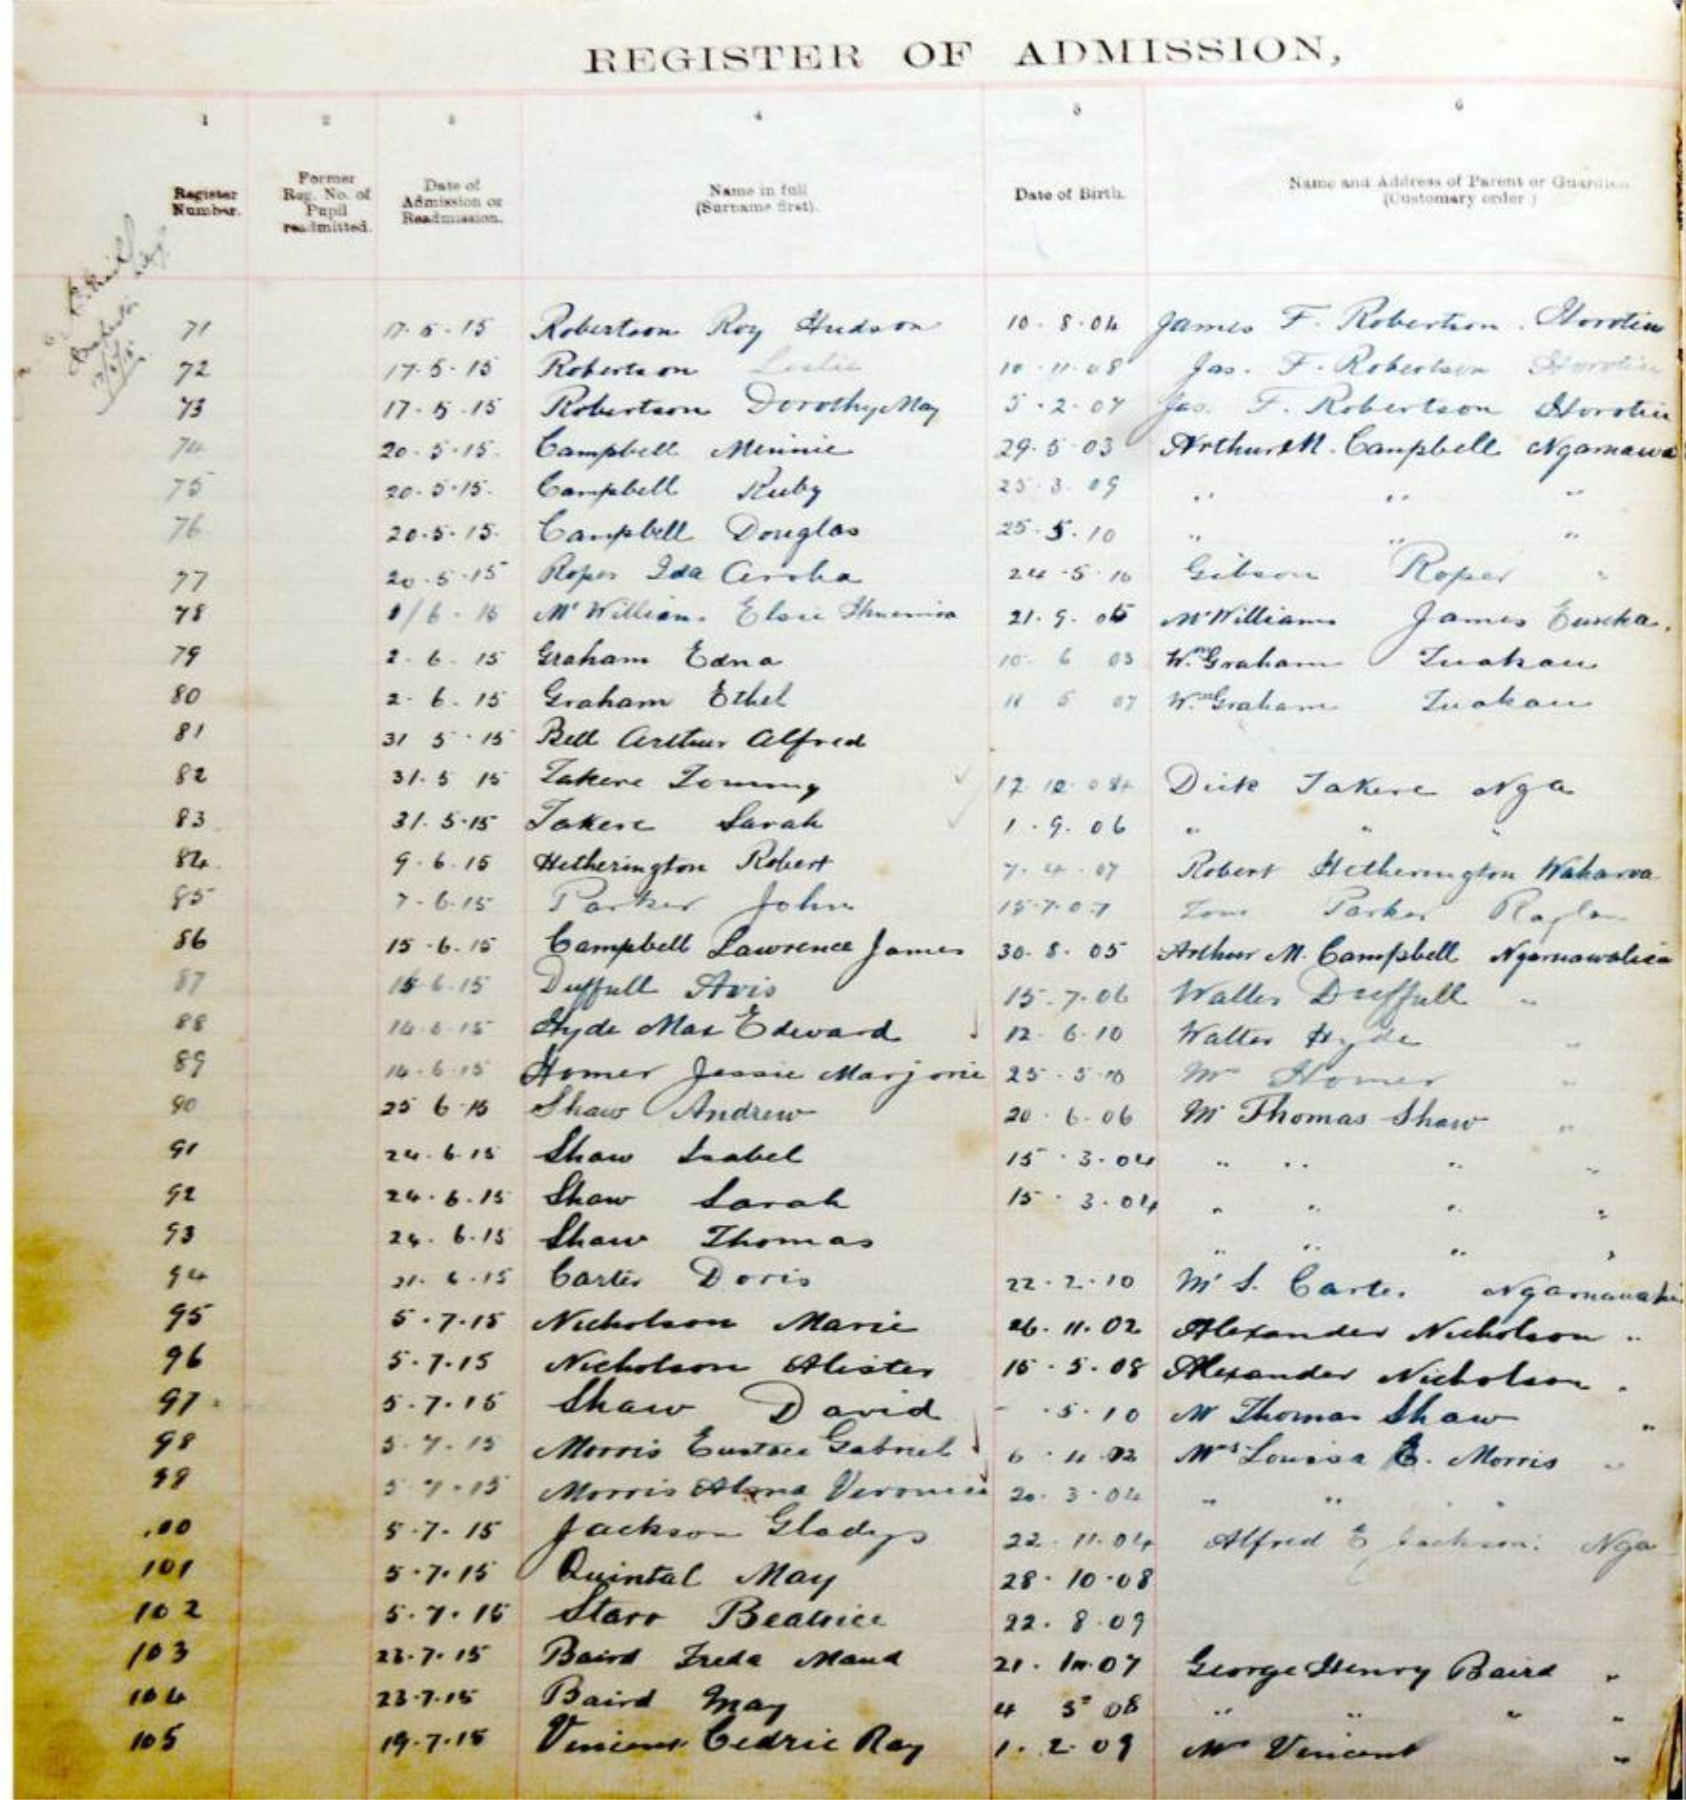 REGISTER OF ADMISSION,
1 2 3 4 5 6
Register Number. Former Reg. No. of Pupil readmitted. Date of Admission or Readmission. Name in full (Surname first). Date of Birth. Name and Address of Parent or Guardian (Customary order)
71 17.5.15 Robertson Roy Hudson 10.8.04 James F. Robertson. Horotiu
72 17.5.15 Robertson Leslie 10.11.08 Jas. F. Robertson Horotiu
73 17.5.15 Robertson Dorothy May 5.2.07 Jas. F. Robertson Horotiu
74 20.5.15. Campbell Minnie 29.5.03 Arthur M. Campbell Ngaruawa
75 20.5.15. Campbell Ruby 25.3.09 " " "
76 20.5.15. Campbell Douglas 25.5.10 " " "
77 20.5.15 Roper Ida Aroha 24.5.10 Gibson Roper "
78 1/6.15 McWilliams Elsie 21.9.05 McWilliams James Eureka.
79 2.6.15 Graham Edna 10 6 03 Wm Graham Tuakau
80 2.6.15 Graham Ethel 11 5 07 Wm Graham Tuakau
81 31 5.15 Bell Arthur Alfred
82 31.5 15 Takere Tommy 17.12.04 Dick Takere Nga
83 31.5.15 Takere Sarah 1.9.06 " " "
84. 9.6.15 Hetherington Robert 7.4.07 Robert Hetherington
85 7.6.15 Parker John 15.7.07 Tom Parker Raglan
86 15.6.15 Campbell Lawrence James 30.8.05 Arthur M. Campbell Ngaruawahia
87 15.6.15 Duffull Avis 15.7.06 Walter Duffull "
88 14.6.15 Hyde Max Edward 12.6.10 Walter Hyde "
89 14.6.15 Homer Jessie Marjorie 25.5.10 Mr Homer "
90 25 6 15 Shaw Andrew 20.6.06 Mr Thomas Shaw "
91 24.6.15 Shaw Isabel 15.3.04 " " " "
92 24.6.15 Shaw Sarah 15.3.04 " " " "
93 24.6.15 Shaw Thomas " " " "
94 21.6.15 Carter Doris 22.2.10 Mr S. Carter Ngaruawahi
95 5.7.15 Nicholson Marie 26.11.02 Alexander Nicholson "
96 5.7.15 Nicholson Alister 15.5.08 Alexander Nicholson "
97 5.7.15 Shaw David - .5.10 Mr Thomas Shaw "
98 5.7.15 Morris Eustace Gabriel 6.11.02 Mrs Louisa E. Morris "
99 5.7.15 Morris Alma Veronica 20.3.04 " " "
100 5.7.15 Jackson Gladys 22.11.04 Alfred E Jackson. Nga
101 5.7.15 Quintal May 28.10.08
102 5.7.15 Starr Beatrice 22.8.09
103 23.7.15 Baird Freda Maud 21. 07 George Henry Baird "
104 23.7.15 Baird May 4 5 08 " " " "
105 19.7.15 Vincent Cedric Ray 1.2.09 Mr Vincent "